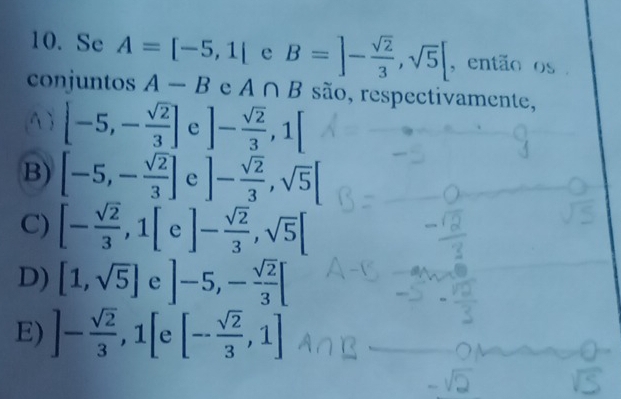 10. Se A = [−5, 1[ e B = ]−√2/3, √5[, então os
conjuntos A − B e A ∩ B são, respectivamente,
A) [−5, −√2/3] e ]−√2/3, 1[
B) [−5, −√2/3] e ]−√2/3, √5[
C) [−√2/3, 1[ e ]−√2/3, √5[
D) [1, √5] e ]−5, −√2/3[
E) ]−√2/3, 1[ e [−√2/3, 1]
A =
−5
B =
√5
A−B
−5
A∩B
−√2 √5